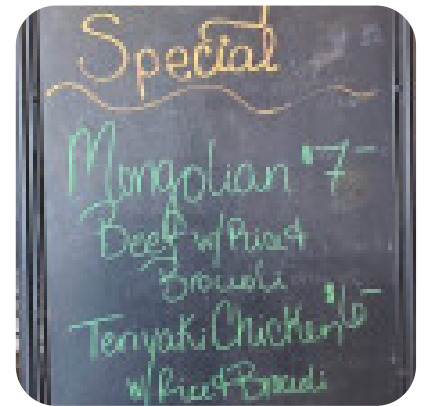 Special
Mongolian $7-
Beef w/ Rice &
Broccoli
Teriyaki Chicken $6-
w/ Rice & Broccoli